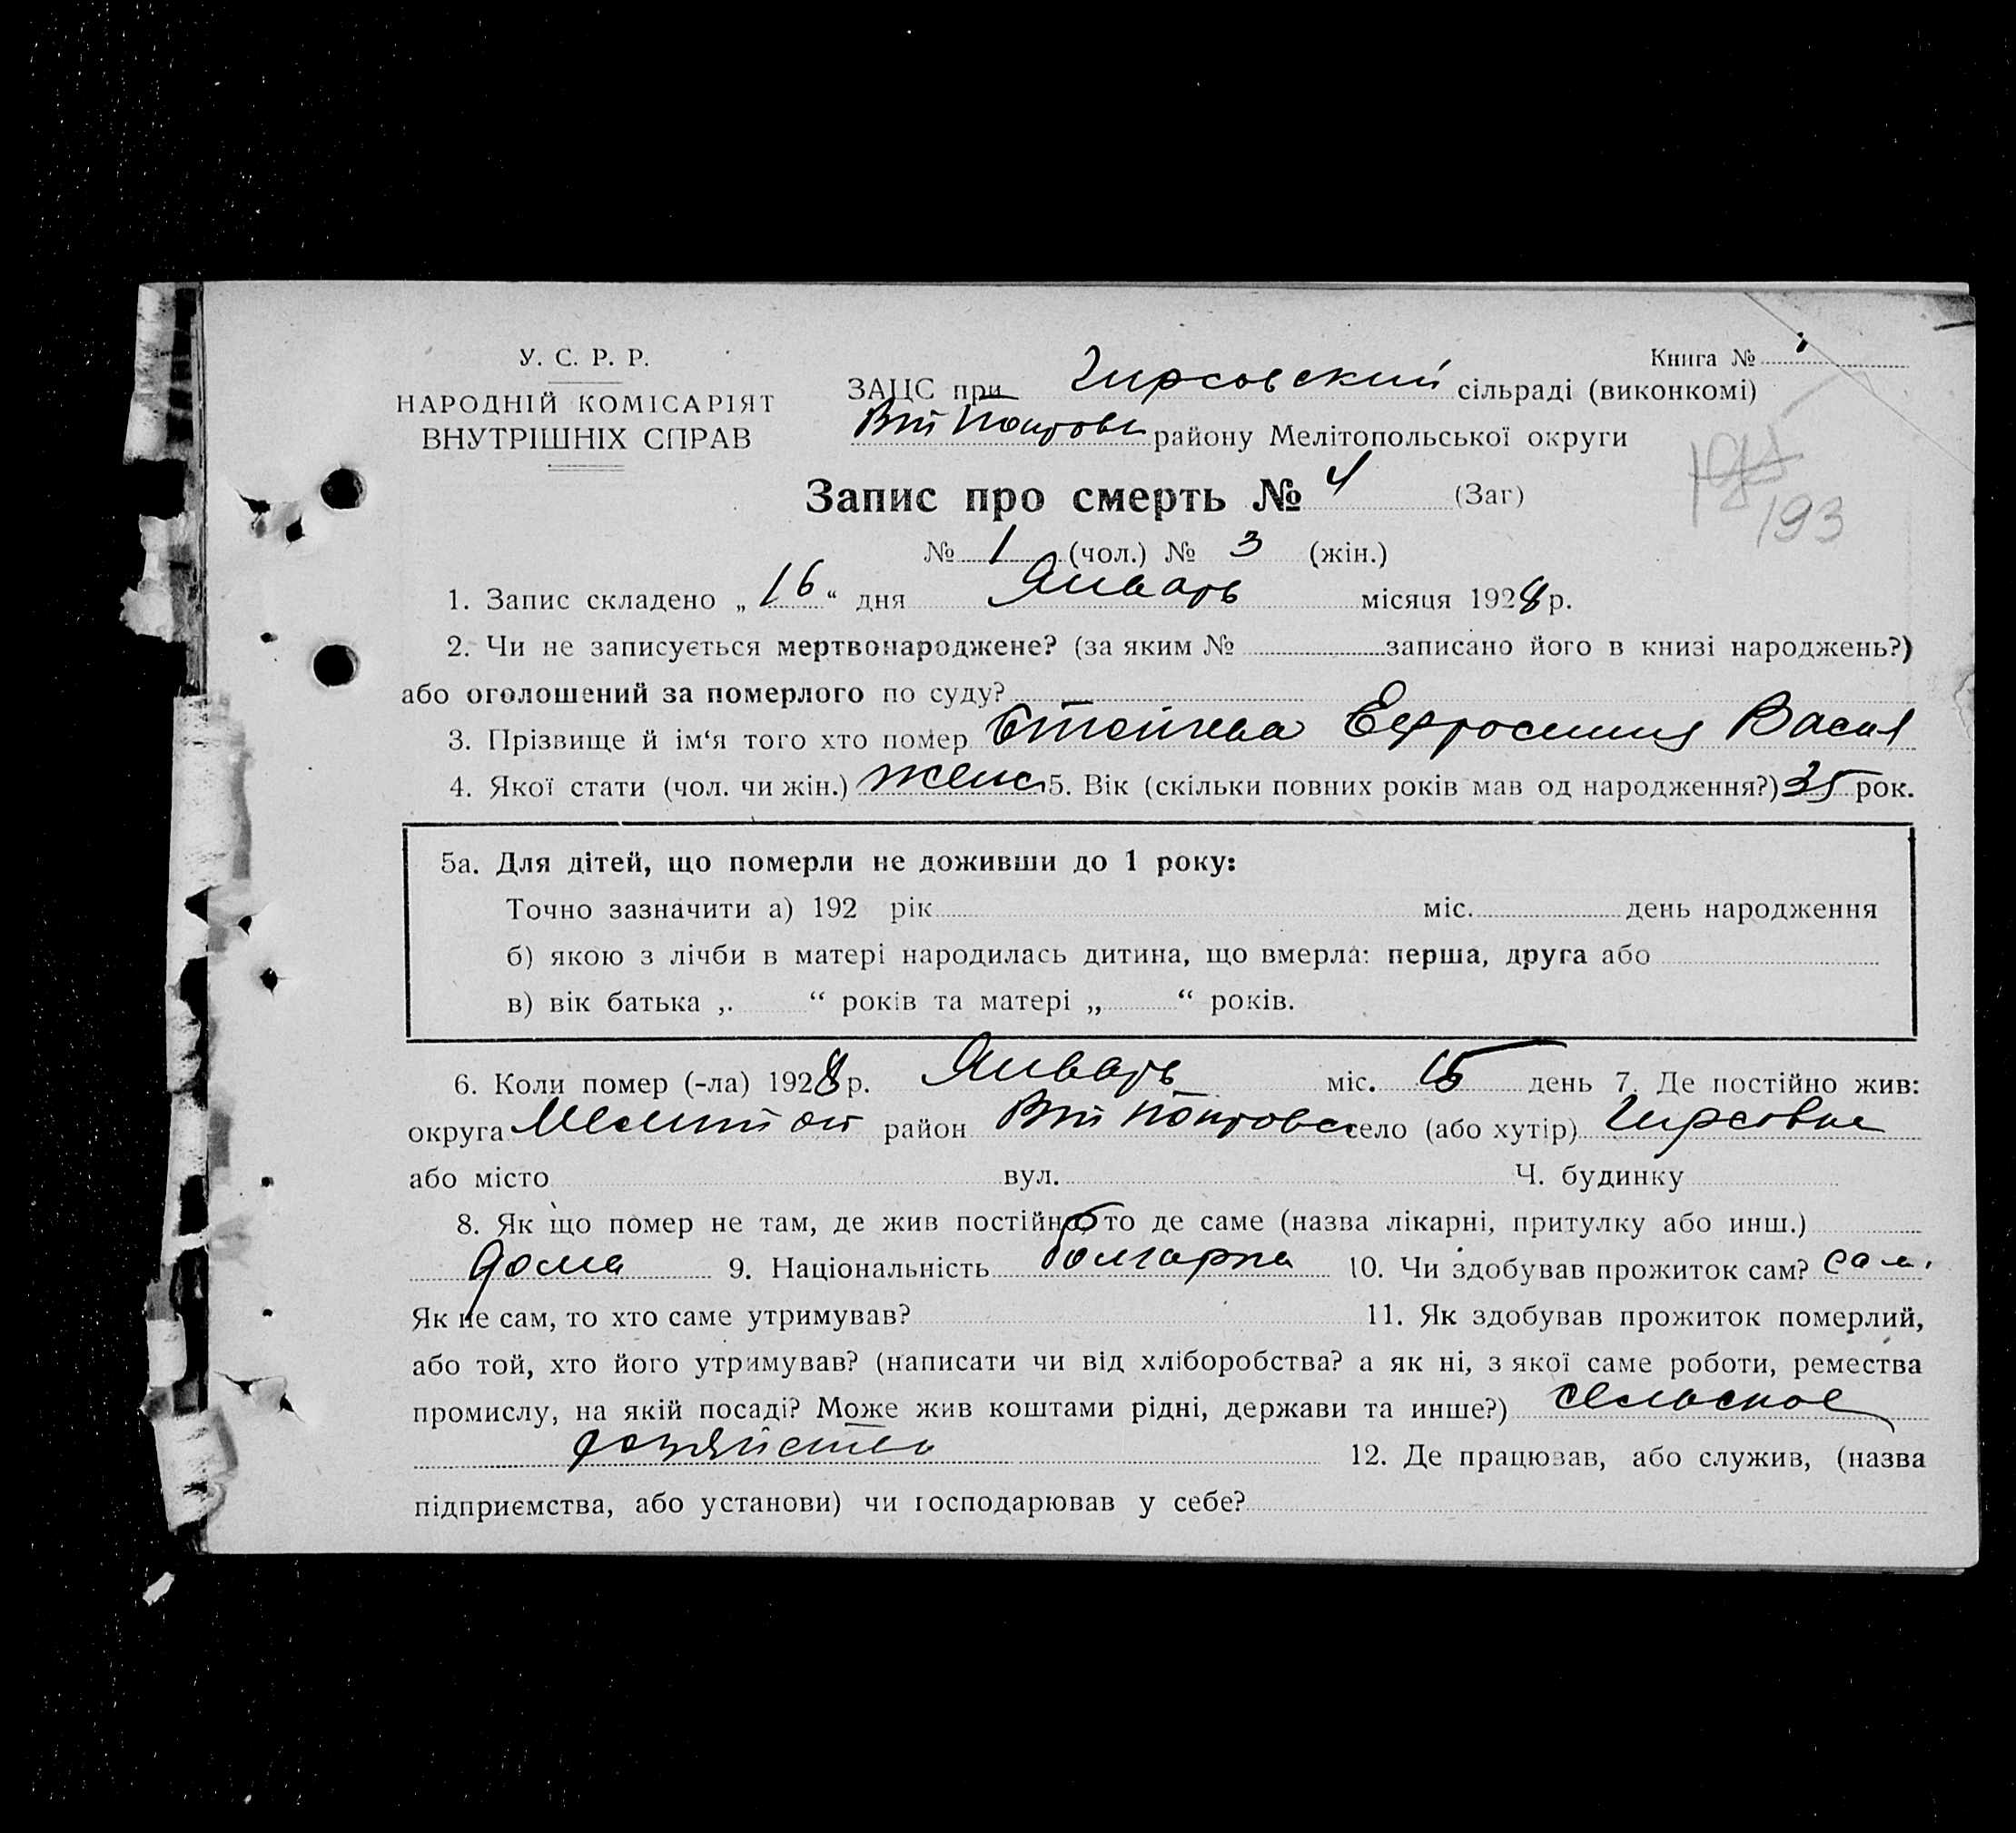 У. С. Р. Р.
НАРОДНІЙ КОМІСАРІЯТ
ВНУТРІШНІХ СПРАВ
Книга №
ЗАЦС при Гирсовский сільраді (виконкомі)
району Мелітопольської округи
193
Запис про смерть № 4 (Заг)
№ 1 (чол.) № 3 (жін.)
1. Запис складено „16“ дня Январь місяця 1928 р.
2. Чи не записується мертвонароджене? (за яким № записано його в книзі народжень?)
або оголошений за померлого по суду?
3. Прізвище й ім‘я того хто помер Стойчева Ефросиния Васил
4. Якої стати (чол. чи жін.) женс 5. Вік (скільки повних років мав од народження?) 35 рок.
5а. Для дітей, що померли не доживши до 1 року:
Точно зазначити а) 192 рік міс. день народження
б) якою з лічби в матері народилась дитина, що вмерла: перша, друга або
в) вік батька „ “ років та матері „ “ років.
6. Коли помер (-ла) 1928 р. Январь міс. 15 день 7. Де постійно жив:
округа район село (або хутір) Гирсовка
або місто вул. Ч. будинку
8. Як що помер не там, де жив постійно, то де саме (назва лікарні, притулку або инш.)
дома 9. Національність болгарка 10. Чи здобував прожиток сам? сам.
Як не сам, то хто саме утримував? 11. Як здобував прожиток померлий,
або той, хто його утримував? (написати чи від хліборобства? а як ні, з якої саме роботи, ремества
промислу, на якій посаді? Може жив коштами рідні, держави та инше?) сельское
хозяйство 12. Де працював, або служив, (назва
підприємства, або установи) чи господарював у себе?